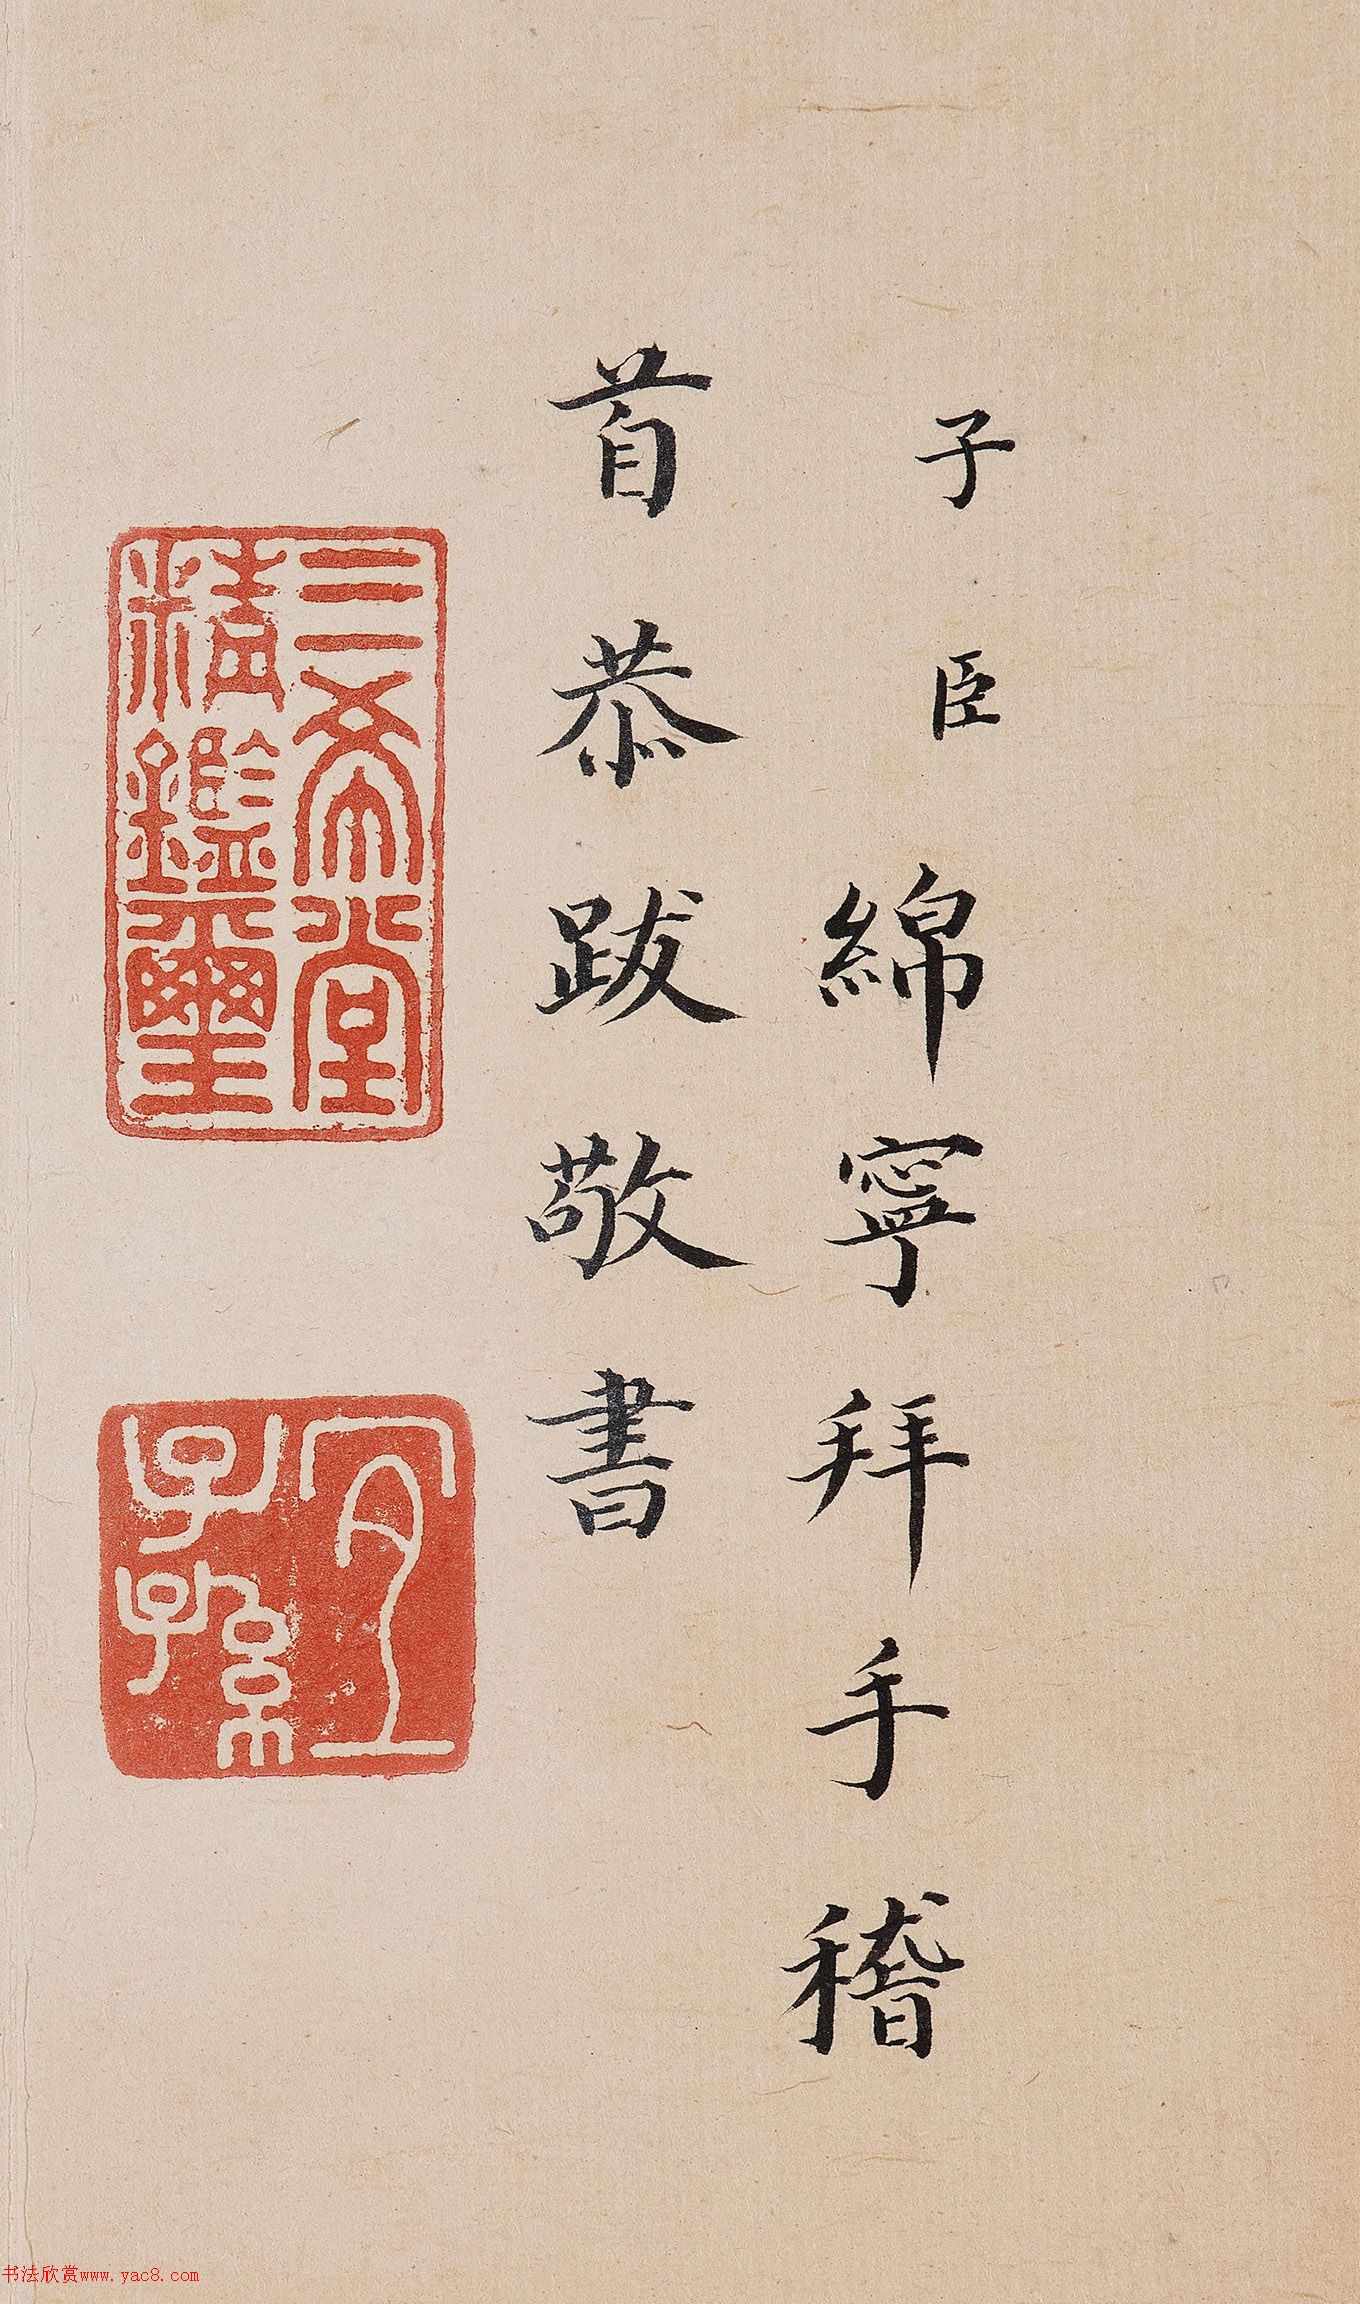 子臣綿寧拜手稽
首恭跋敬書
三希堂
精鑑璽
宜
子孫
书法欣赏www.yac8.com